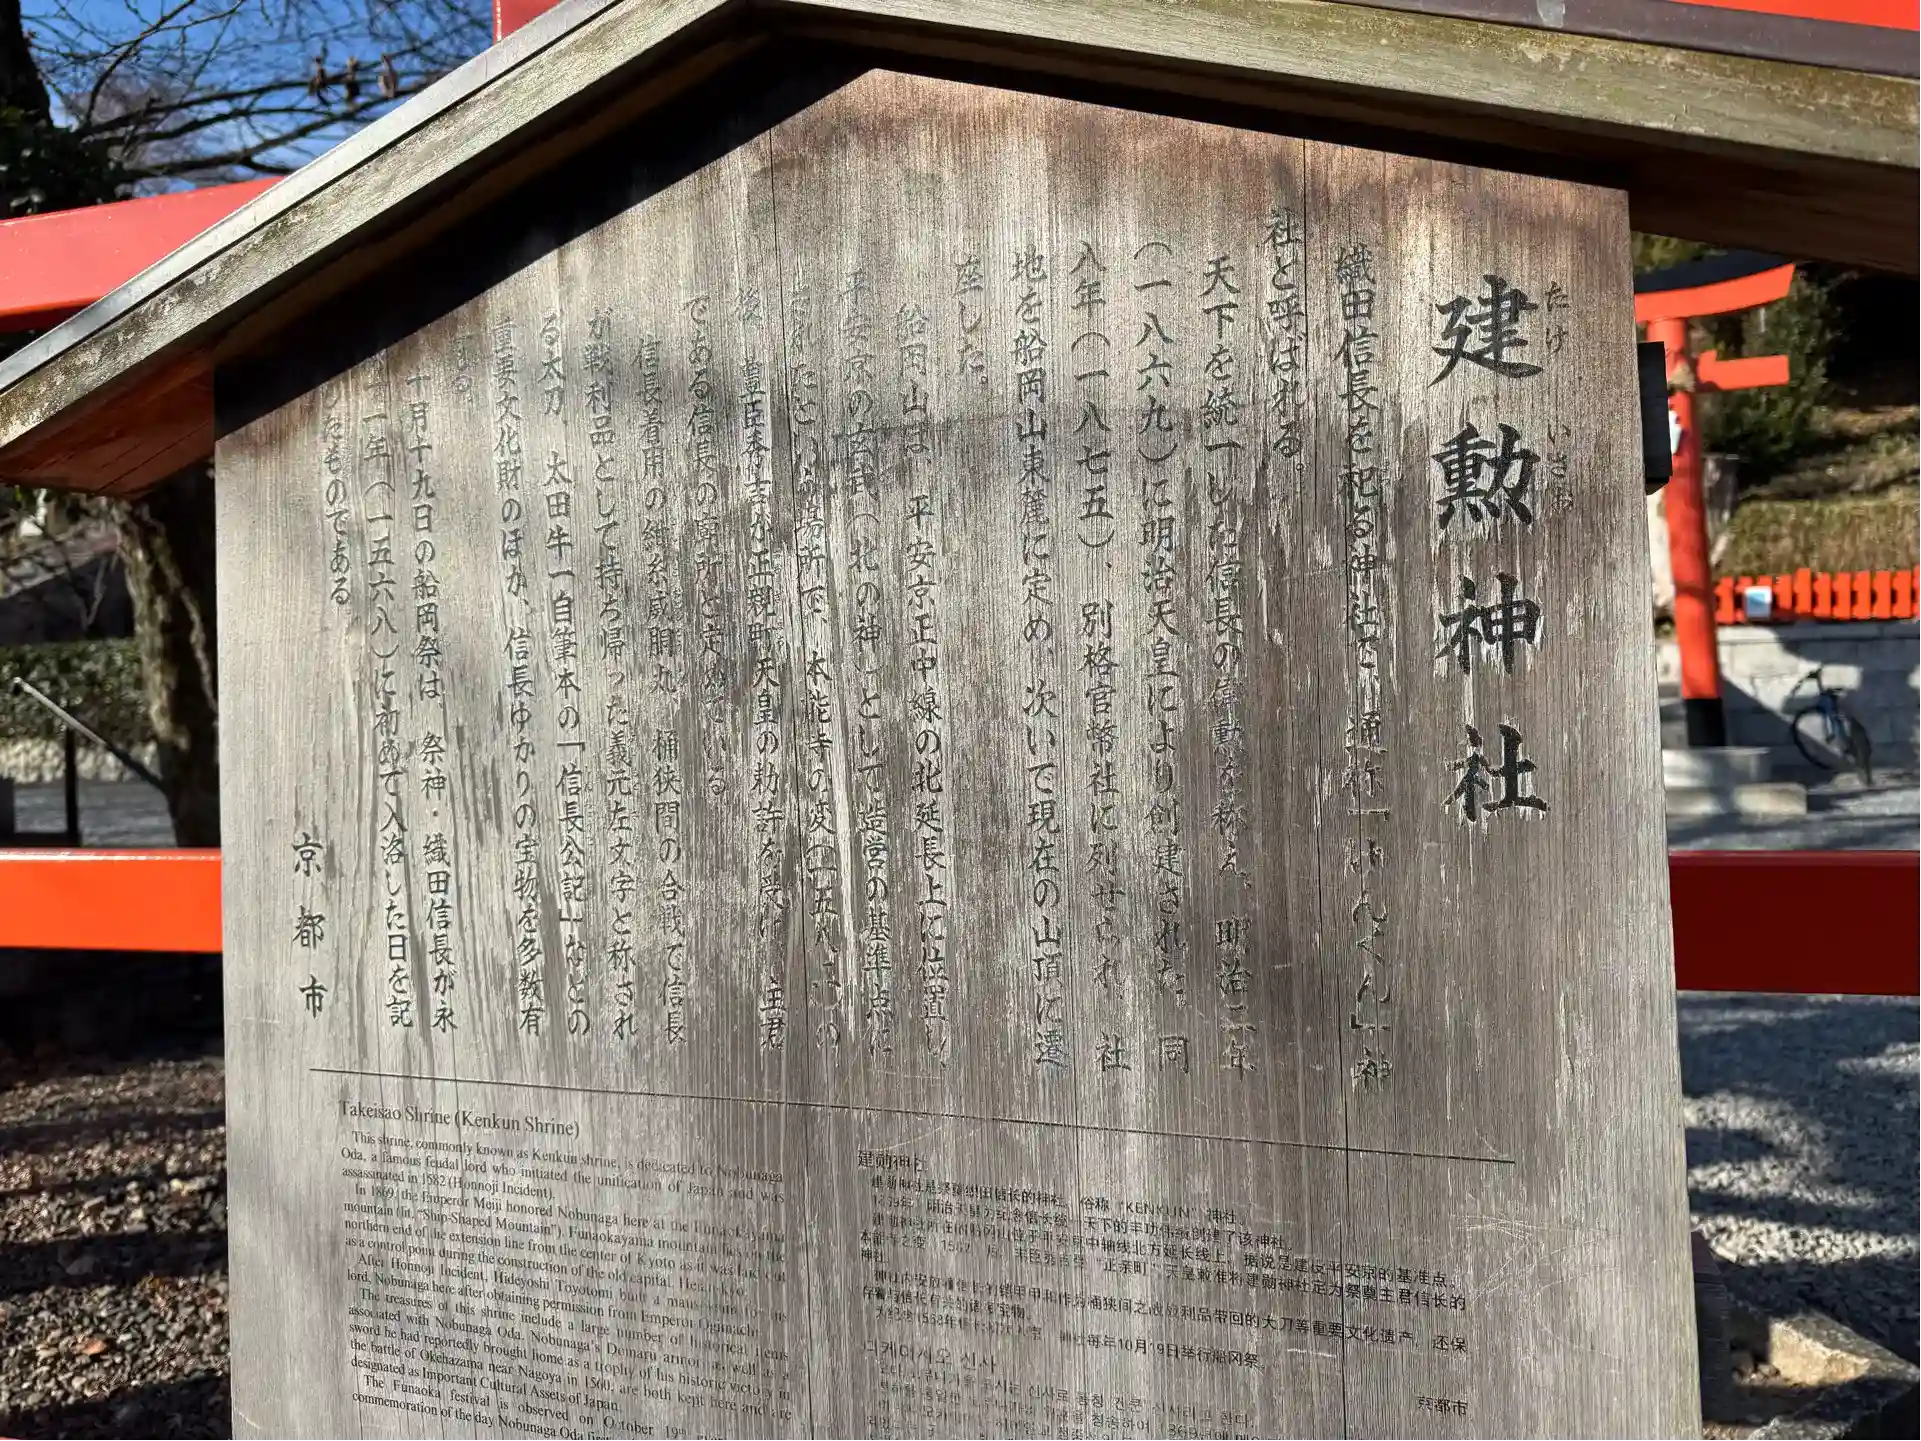 建勲神社
たけ いさお
織田信長を祀る神社で、通称「けんくん」神
社と呼ばれる。
天下を統一した信長の偉勲を称え、明治二年
(一八六九)に明治天皇により創建された。同
八年(一八七五)、別格官幣社に列せられ、社
地を船岡山東麓に定め、次いで現在の山頂に遷
座した。
船岡山は、平安京正中線の北延長上に位置し、
平安京の玄武(北の神)として造営の基準点に
されたという場所で、本能寺の変(一五八二)の
後、豊臣秀吉が正親町天皇の勅許を受け、主君
である信長の廟所と定めている
信長着用の紺糸威胴丸、桶狭間の合戦で信長
が戦利品として持ち帰った義元左文字と称され
る太刀、太田牛一自筆本の「信長公記」などの
重要文化財のほか、信長ゆかりの宝物を多数有
する。
十月十九日の船岡祭は、祭神・織田信長が永
十一年(一五六八)に初めて入洛した日を記
したものである
京都市
Takeisao Shrine (Kenkun Shrine)
This shrine, commonly known as Kenkun shrine, is dedicated to Nobunaga
Oda, a famous feudal lord who initiated the unification of Japan and was
assassinated in 1582 (Honnoji Incident).
In 1869, the Emperor Meiji honored Nobunaga here at the Funaokayama
mountain (lit, "Ship-Shaped Mountain"). Funaokayama mountain lies on the
northern end of the extension line from the center of Kyoto as it was laid out
as a control point during the construction of the old capital, Heian-kyo.
After Honnoji Incident, Hideyoshi Toyotomi built a mausoleum for his
lord, Nobunaga here after obtaining permission from Emperor Ogimachi.
The treasures of this shrine include a large number of historical items
associated with Nobunaga Oda. Nobunaga's Domaru armor as well as a
sword he had reportedly brought home as a trophy of his historic victory in
the battle of Okehazama near Nagoya in 1560, are both kept here and are
designated as Important Cultural Assets of Japan.
The Funaoka festival is observed on October 19th
commemoration of the day Nobunaga Oda first
建勋神社
建勋神社是祭奠织田信长的神社，俗称“KENKUN”神社。
1869年，明治天皇为纪念信长统一天下的丰功伟绩创建了该神社。
建勋神社所在的船冈山位于平安京中轴线北方延长线上，据说是建设平安京的基准点。
本能寺之变（1582）后，丰臣秀吉受“正亲町”天皇敕准将建勋神社定为祭奠主君信长的
神社。
神社内安放着信长的铠甲和作为桶狭间之战战利品带回的大刀等重要文化遗产，还保
存着与信长有关的诸多宝物。
为纪念1568年信长初次入京，神社每年10月19日举行船冈祭。
京都市
다케이사오 신사